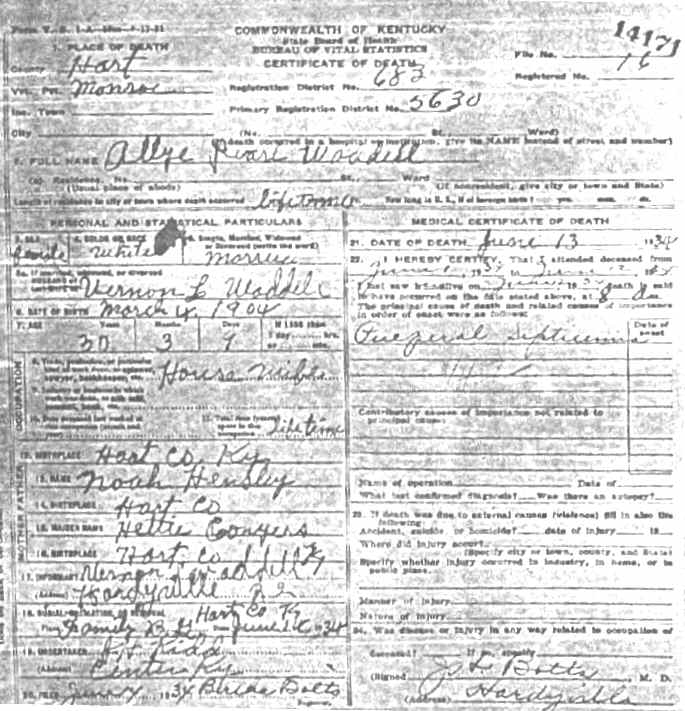 COMMONWEALTH OF KENTUCKY
State Board of Health
BUREAU OF VITAL STATISTICS
CERTIFICATE OF DEATH
14171
PLACE OF DEATH
County Hart
Vot. Pct. Monroe
Inc. Town
City
File No. 16
Registered No.
Registration District No. 682
Primary Registration District No. 5630
(No. St., Ward)
(If death occurred in a hospital or institution, give its NAME instead of street and number)
2. FULL NAME Allye Waddell
(a) Residence, No. St., Ward
(Usual place of abode) (If nonresident, give city or town and State)
Length of residence in city or town where death occurred lifetime How long in U. S., if of foreign birth? yrs. mos. ds.
PERSONAL AND STATISTICAL PARTICULARS
3. SEX 4. COLOR OR RACE 5. Single, Married, Widowed or Divorced (write the word)
female White
5a. If married, widowed, or divorced
HUSBAND of
Vernon L Waddell
6. DATE OF BIRTH March 4, 1904
7. AGE Years Months Days If LESS than
30 3 9 1 day hrs. or min.
OCCUPATION
8. Trade, profession, or particular kind of work done, as spinner, sawyer, bookkeeper, etc. House
9. Industry or business in which work was done, as silk mill,
10. Date deceased last worked at this occupation (month and year)
11. Total time (years) spent in this occupation lifetime
12. BIRTHPLACE Hart Co. Ky
FATHER
13. NAME Noah Hensley
14. BIRTHPLACE Hart Co
MOTHER
15. MAIDEN NAME Hettie Conyers
16. BIRTHPLACE Hart Co Ky
17. INFORMANT Vernon Waddell
(Address) Hardyville
18. BURIAL, CREMATION, OR REMOVAL Hart Co Ky
Place Family Date June 34
19. UNDERTAKER
(Address) Center Ky
20. FILED 1934 Botts
MEDICAL CERTIFICATE OF DEATH
21. DATE OF DEATH June 13 1934
22. I HEREBY CERTIFY, That I attended deceased from
June 1934 to June
I last saw h alive on June 1934 death is said
to have occurred on the date stated above, at 8 m.
The principal cause of death and related causes of importance
in order of onset were as follows:
Date of onset
Contributory causes of importance not related to
principal cause:
Name of operation Date of
What test confirmed diagnosis? Was there an autopsy?
23. If death was due to external causes (violence) fill in also the
following:
Accident, suicide or homicide? date of injury 19
Where did injury occur?
(Specify city or town, county, and State)
Specify whether injury occurred in industry, in home, or in
public place.
Manner of injury
Nature of injury
24. Was disease or injury in any way related to occupation of
deceased? If so, specify
(Signed) Botts, M. D.
(Address) Hardyville